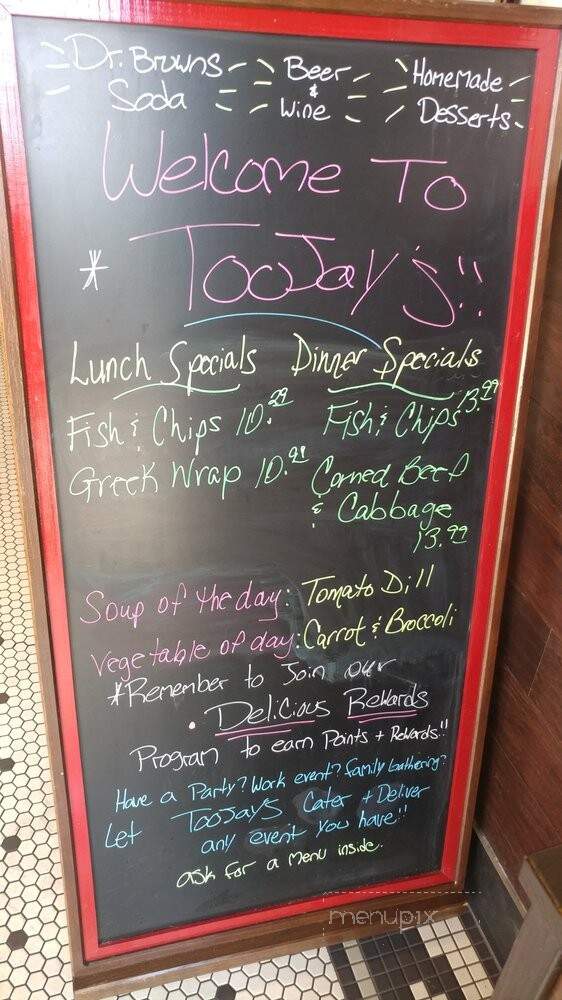 Dr. Browns Soda
Beer & Wine
HomeMade Desserts
Welcome To
* TooJay's!!
Lunch Specials
Fish & Chips 10.99
Greek Wrap 10.99
Dinner Specials
Fish & Chips 13.99
Corned Beef
& Cabbage
13.99
Soup of the day: Tomato Dill
Vegetable of day: Carrot & Broccoli
*Remember to Join our
• Delicious Rewards
Program to earn Points + Rewards!!
Have a Party? Work event? Family Gathering?
Let TooJay's Cater + Deliver
any event you have!!
ask for a menu inside.
menupix